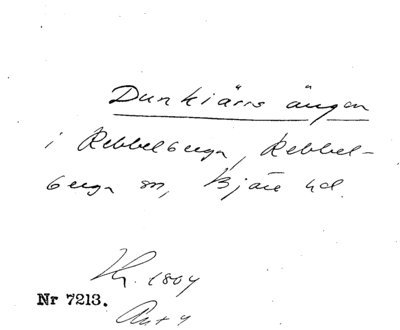 Dunkiärrs ängen
i Rebbelberga, Rebbel-
berga sn, Bjäre hd.
1804
Nr 7213.